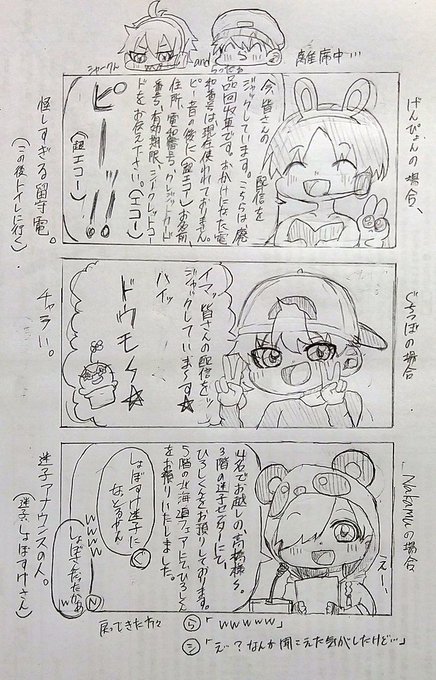 シャークん and らっだぁ 離席中…
げんぴょんの場合、
今、皆さんの配信を
ジャックしています。こちらは廃
品回収車です。おかけになった電
話番号は現在使われておりません。
ピーッ音の後に(超エコー)お名前
住所、電話番号、クレジットカード
番号、有効期限、シークレットコー
ドをお伝え下さい(エコー)
ピーーッ!!
(超エコー)
怪しすぎる留守電。
(この後トイレに行く)
ぐちつぼの場合
イマッ皆さんの配信をッ
ジャックしていま〜す☆
ハイッ
ドウモ〜☆
チャラい。
Nakamuの場合
えー、
4名でお越しの、高橋様〜。
3階の迷子センターにて、
ひろしくんをお預りしております。
5階の北海道フェアにてひろしくん
をお預りいたしました。
しょぼすけ迷子に
なっとるやん
wwww
迷子アナウンスの人。
(迷子、しょぼすけさん)
戻ってきた方々
ら「wwwww」
シ「え?なんか聞こえた気がしたけど…」